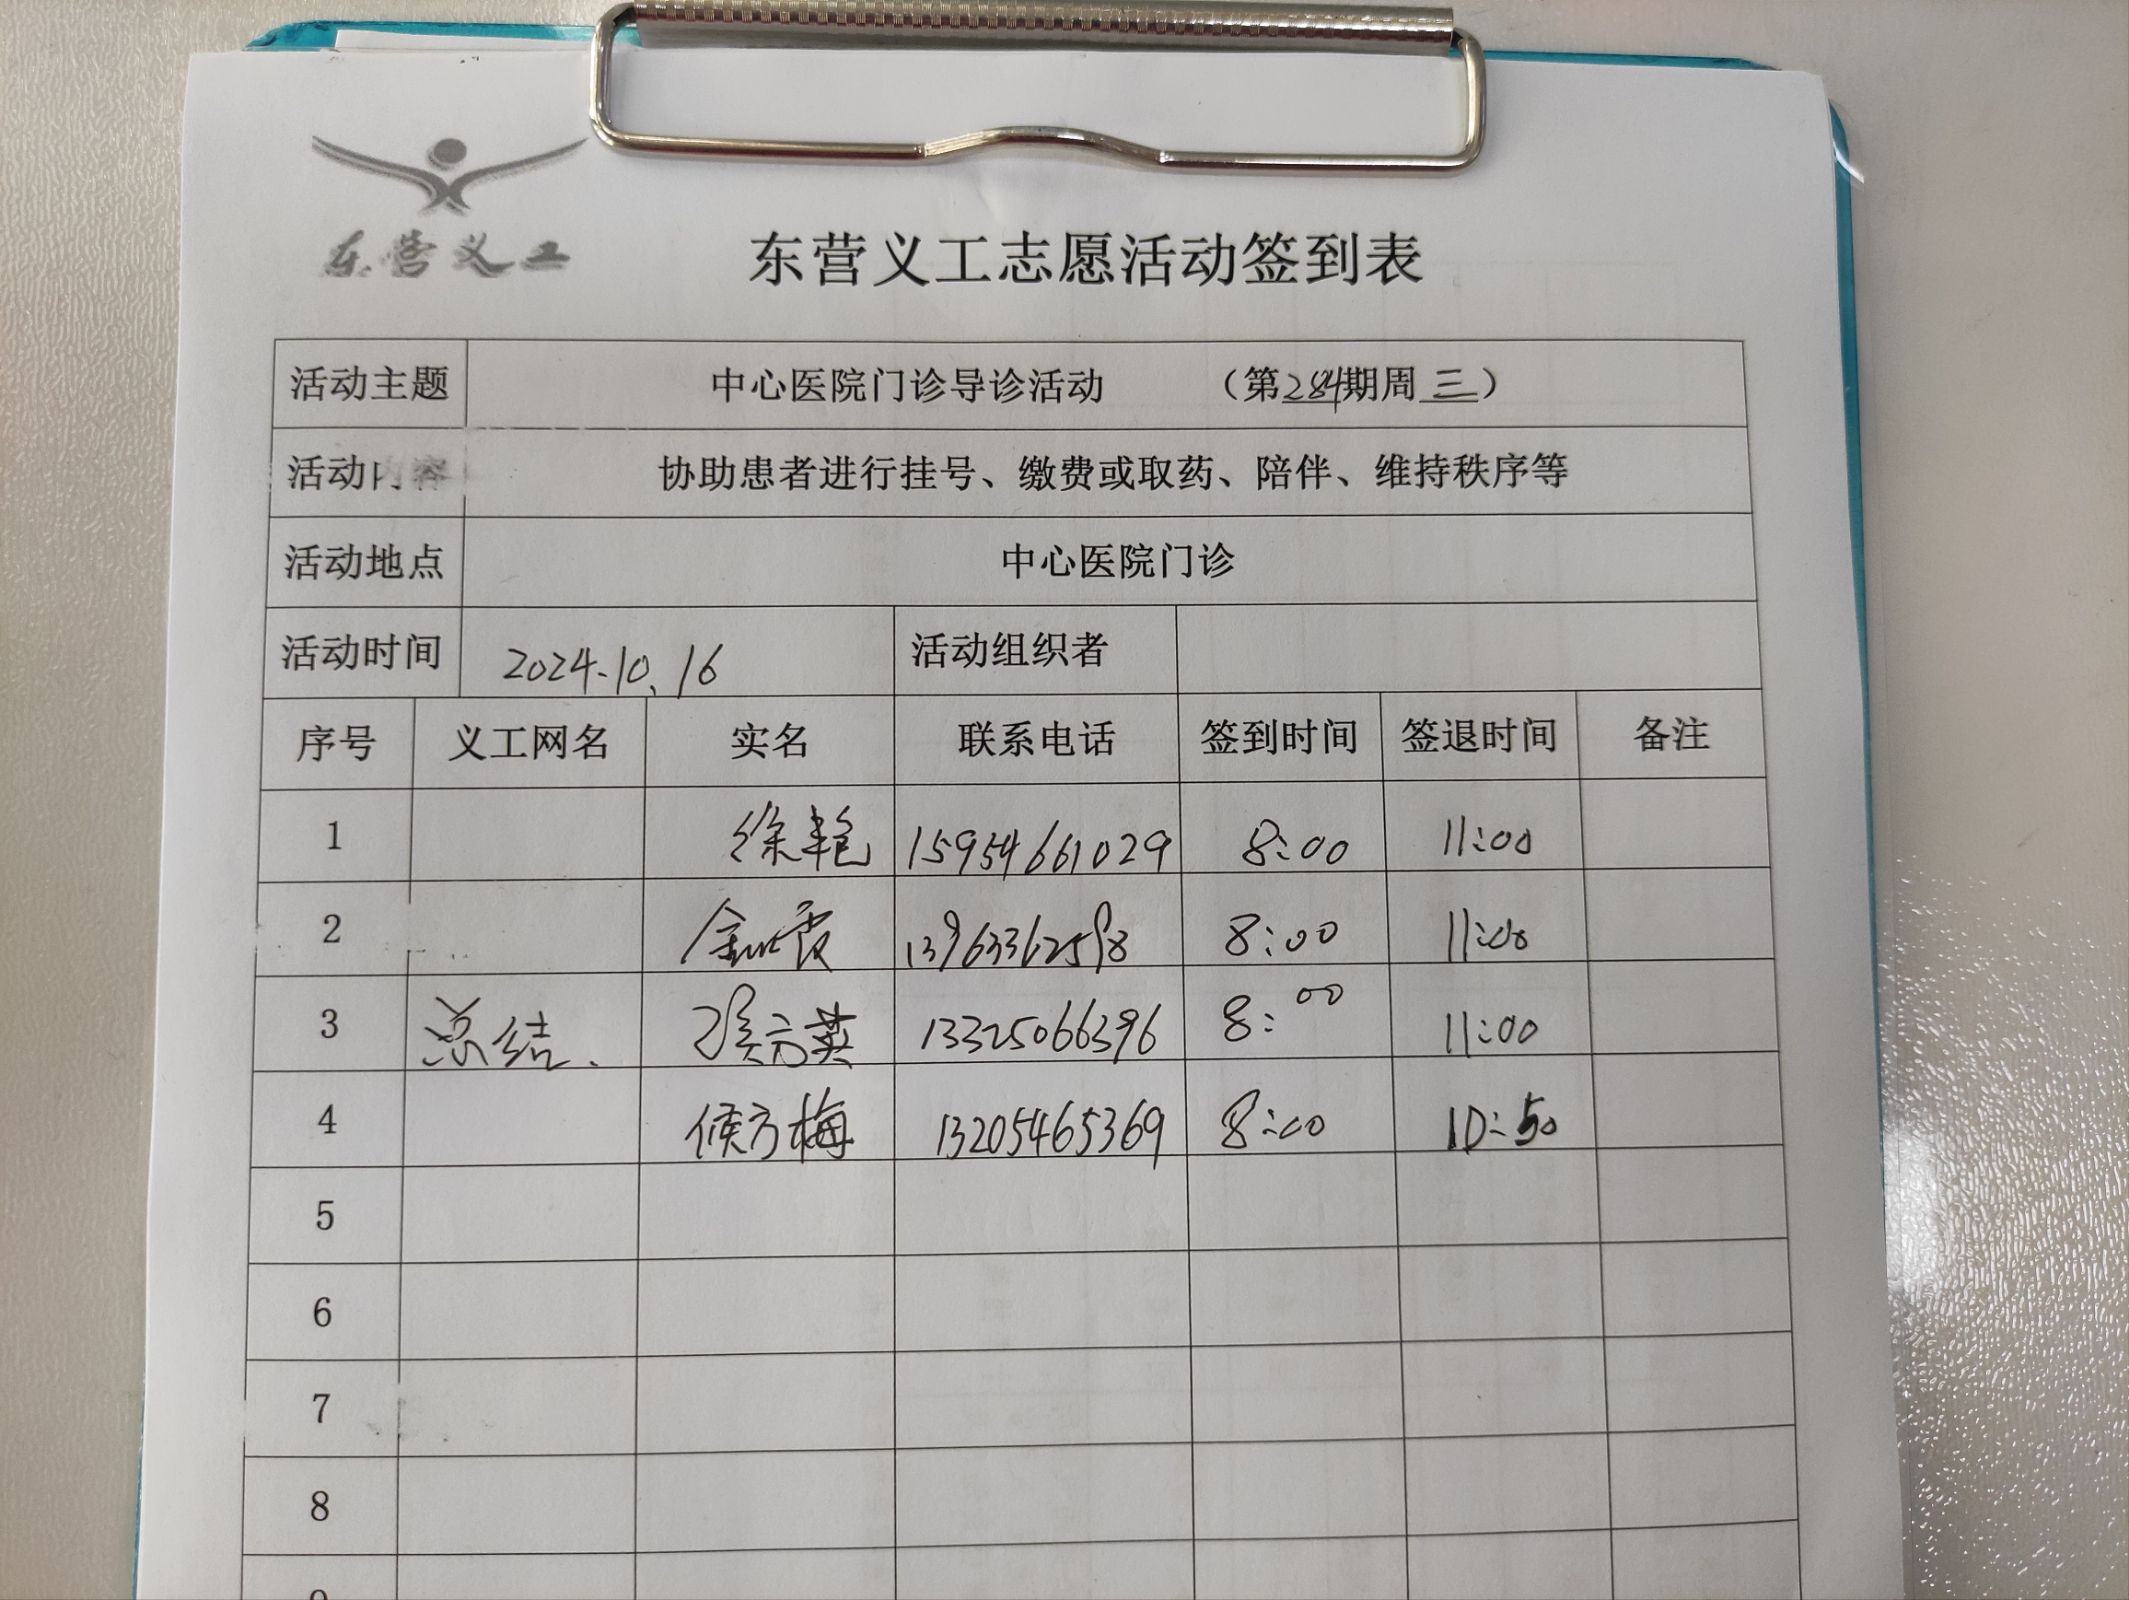 东营义工
东营义工志愿活动签到表
活动主题 中心医院门诊导诊活动 （第284期周三）
活动内容 协助患者进行挂号、缴费或取药、陪伴、维持秩序等
活动地点 中心医院门诊
活动时间 2024.10.16 活动组织者
序号 义工网名 实名 联系电话 签到时间 签退时间 备注
1 徐艳 15954661029 8:00 11:00
2 13963362598 8:00 11:00
3 总结. 英 13325066396 8:00 11:00
4 候方梅 13205465369 8:00 10:50
5
6
7
8